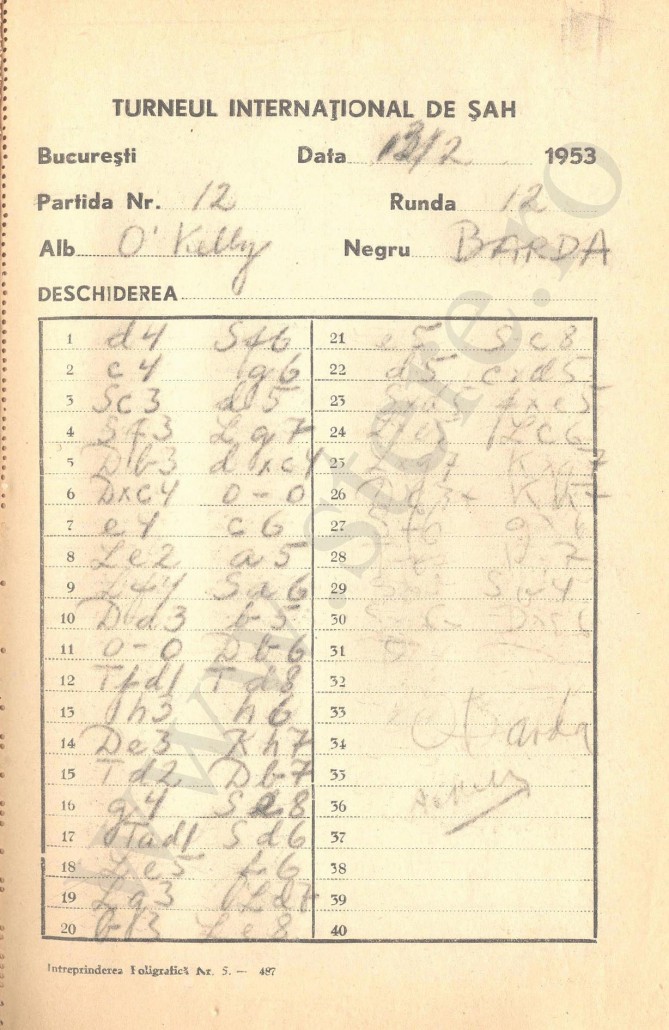 TURNEUL INTERNAŢIONAL DE ŞAH
Bucureşti Data 13/2 1953
Partida Nr. 12 Runda 12
Alb O'Kelly Negru BARDA
DESCHIDEREA
1 d4 Sf6 21 e5 Sc8
2 c4 g6 22 d5 cxd5
3 Sc3 d5 23 Sxd5 fxe5
4 Sf3 Lg7 24 Lxe5 Lc6
5 Db3 dxc4 25 Lxg7 Kxg7
6 Dxc4 0-0 26
7 e4 c6 27
8 Le2 a5 28
9 Lf4 Sa6 29
10 Dd3 b5 30
11 0-0 Db6 31
12 Tfd1 Td8 32
13 h3 h6 33
14 De3 Kh7 34 Barda
15 Td2 Db7 35
16 g4 Se8 36
17 Tad1 Sd6 37
18 Le5 f6 38
19 Lg3 Ld7 39
20 b3 Le8 40
Intreprinderea Poligrafică Nr. 5. — 487
www.stere.ro